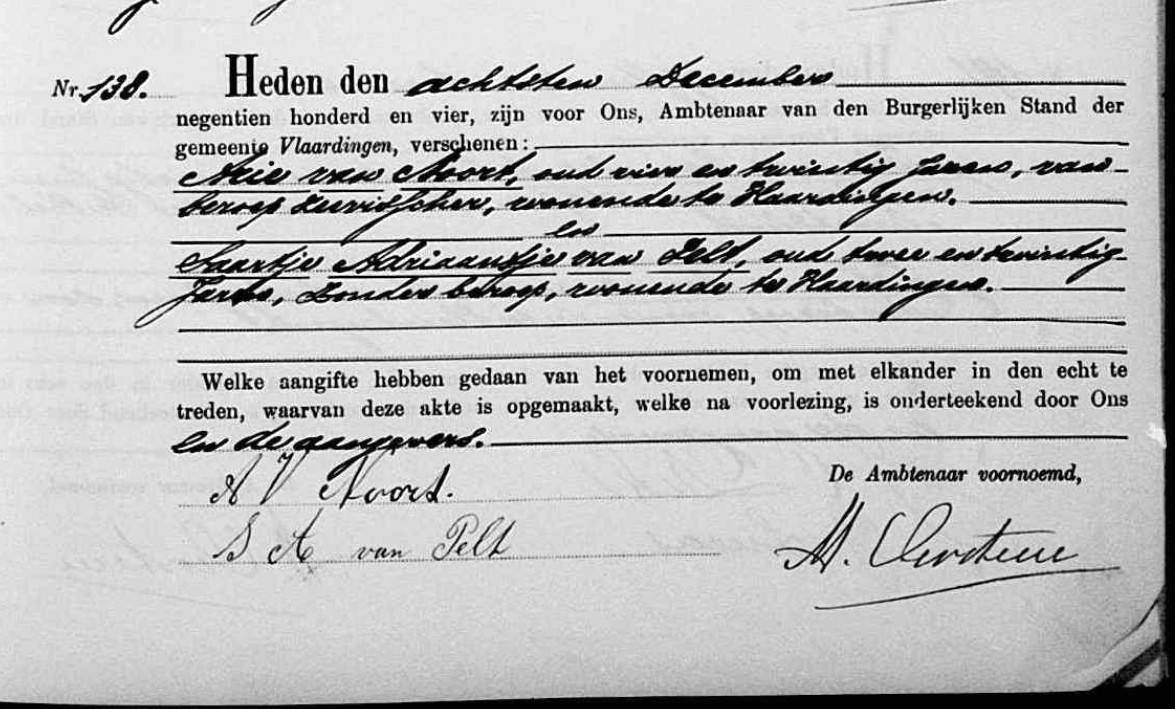 Nr. 138. Heden den achtsten December
negentien honderd en vier, zijn voor Ons, Ambtenaar van den Burgerlijken Stand der
gemeente Vlaardingen, verschenen:
Arie van Noort, oud vier en twintig Jaren, van
beroep zeevisscher, wonende te Vlaardingen.
en
Saartje Adriaantje van Pelt, oud twee en twintig
Jaren, zonder beroep, wonende te Vlaardingen.
Welke aangifte hebben gedaan van het voornemen, om met elkander in den echt te
treden, waarvan deze akte is opgemaakt, welke na voorlezing, is onderteekend door Ons
en de aangevers.
De Ambtenaar voornoemd,
A V Noort.
S A van Pelt